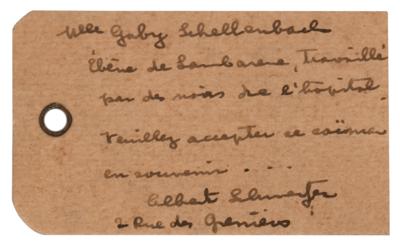 Mlle Gaby Schellenbach
Ébène de Lambarene, travaillé
par des noirs de l'hopital
Veuillez accepter ce caïman
en souvenir ....
Albert Schweitzer
2 Rue des Greniers